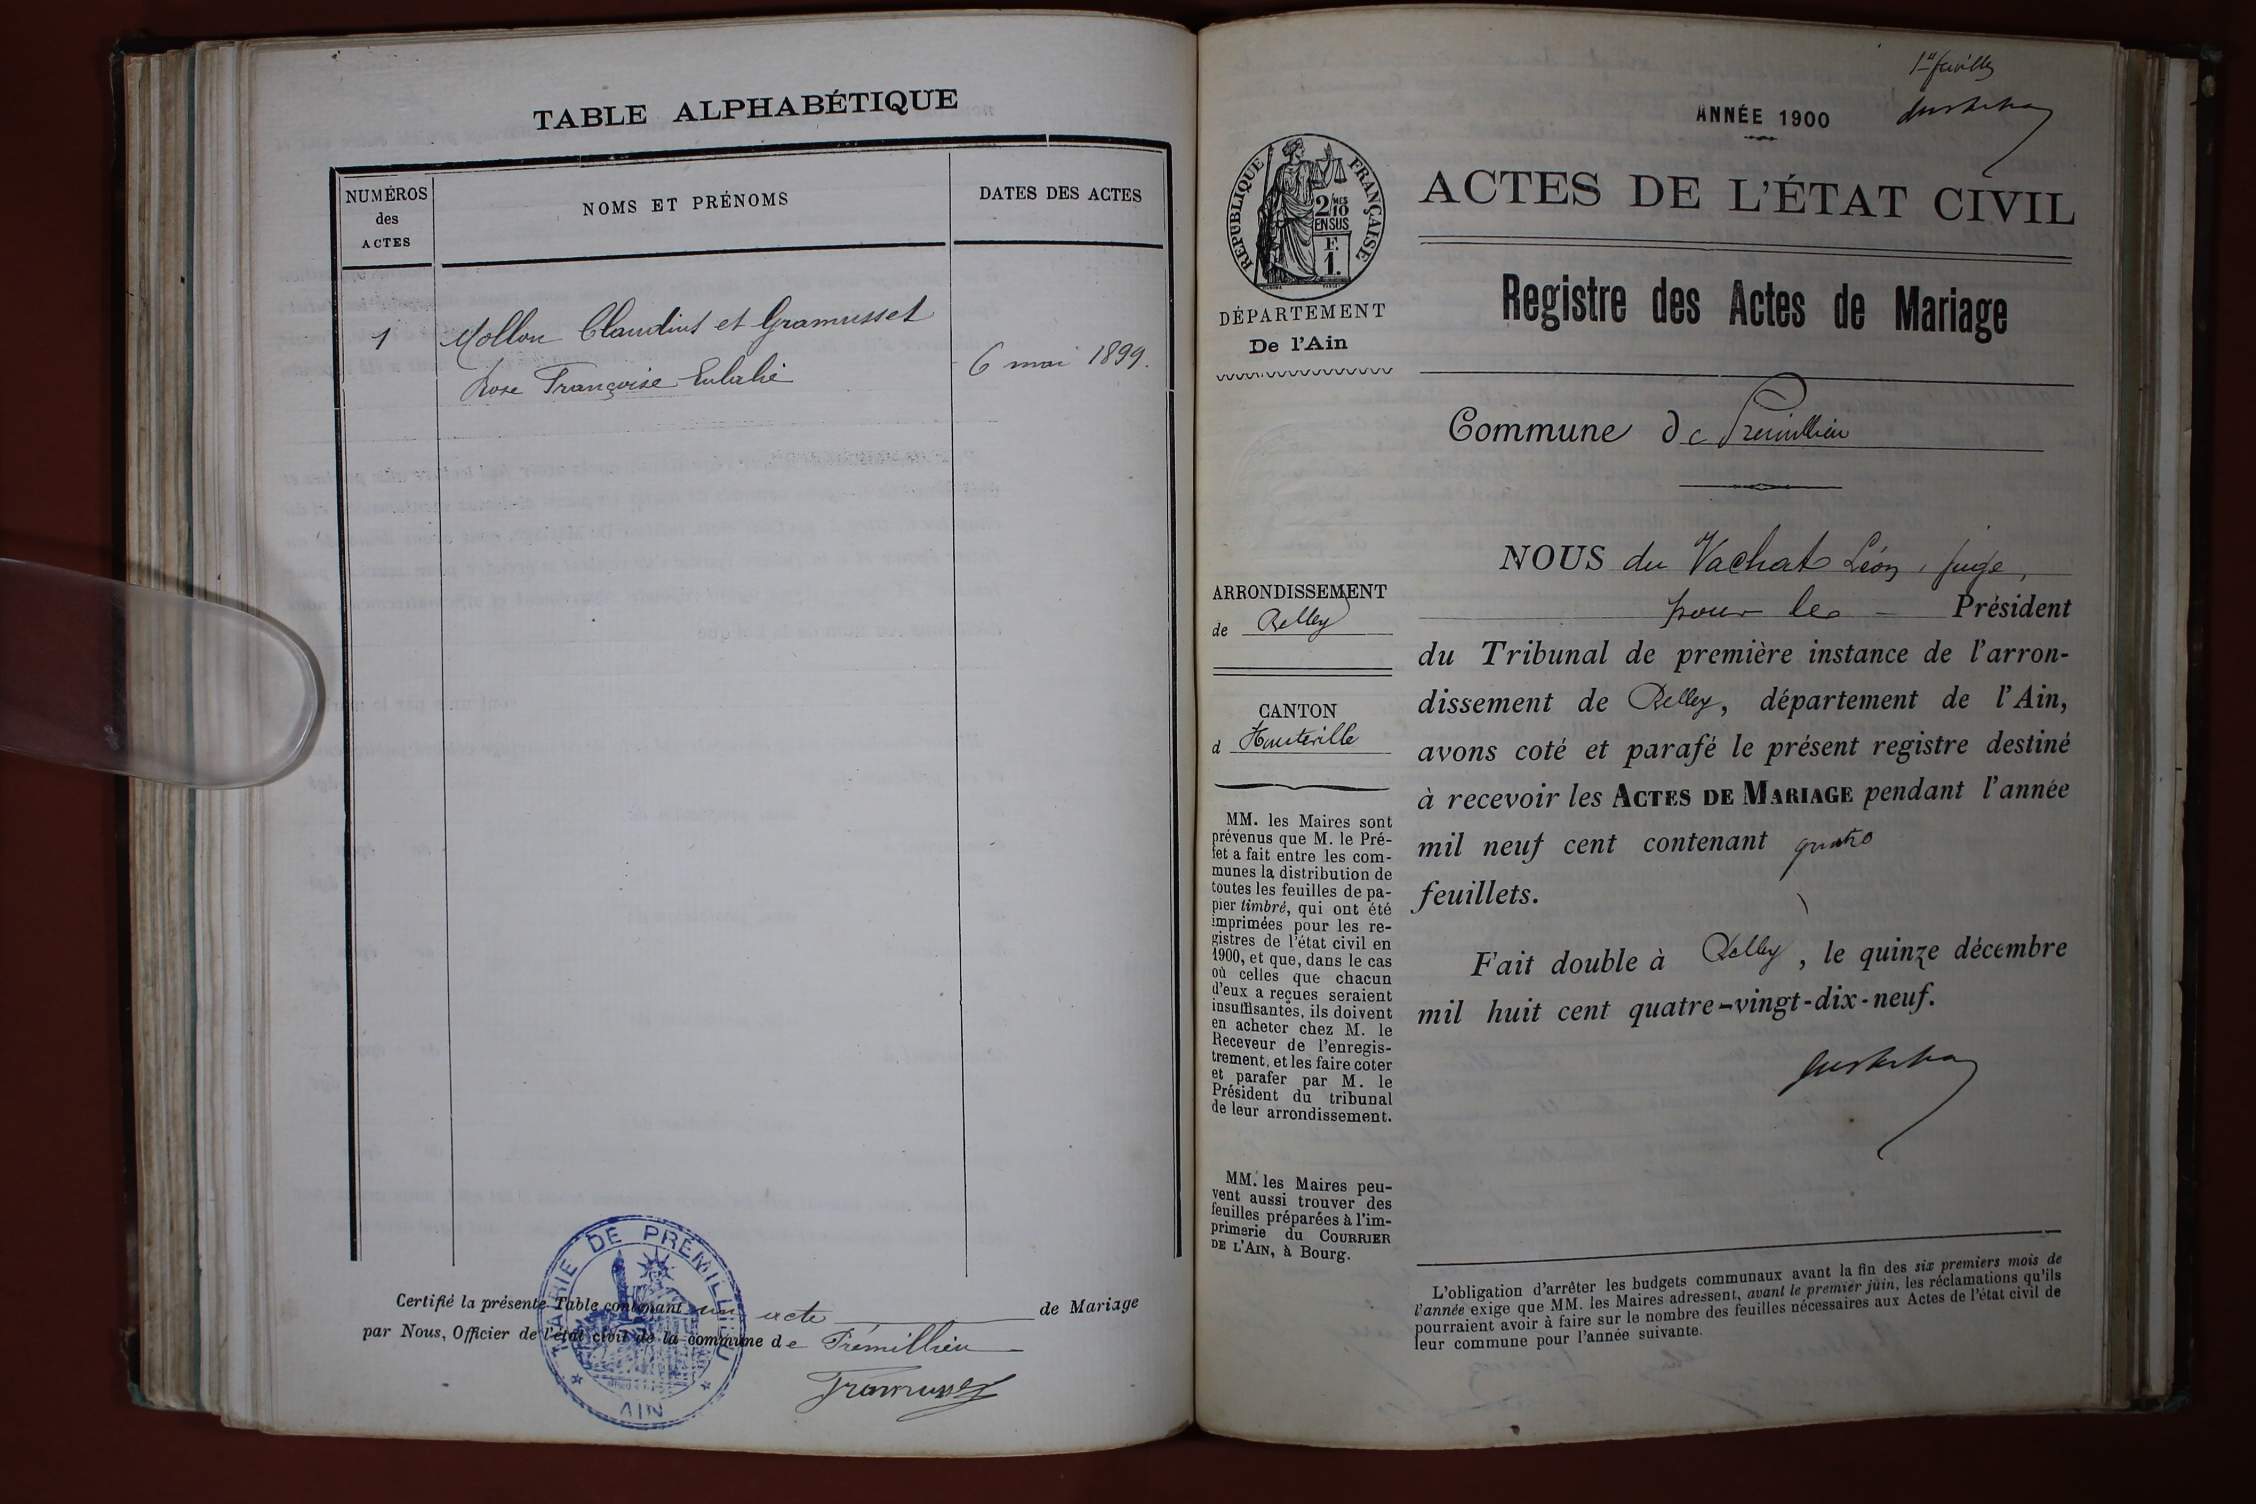 TABLE ALPHABÉTIQUE
NUMÉROS
des
ACTES
NOMS ET PRÉNOMS
DATES DES ACTES
1
Mollon Claudius et Gramusset
Rose Françoise Eulalie
6 mai 1899.
Certifié la présente Table contenant un acte de Mariage
par Nous, Officier de l'état civil de la commune de Prémillieu
Gramusset
MAIRIE DE PRÉMILLIEU
AIN
1er feuillet
ANNÉE 1900
RÉPUBLIQUE FRANÇAISE
2/10 MES
EN SUS
F.
1.
DÉPARTEMENT
De l'Ain
ACTES DE L'ÉTAT CIVIL
Registre des Actes de Mariage
Commune de Prémillieu
ARRONDISSEMENT
de Belley
CANTON
d Hauteville
MM. les Maires sont
prévenus que M. le Pré-
fet a fait entre les com-
munes la distribution de
toutes les feuilles de pa-
pier timbré, qui ont été
imprimées pour les re-
gistres de l'état civil en
1900, et que, dans le cas
où celles que chacun
d'eux a reçues seraient
insuffisantes, ils doivent
en acheter chez M. le
Receveur de l'enregis-
trement, et les faire coter
et parafer par M. le
Président du tribunal
de leur arrondissement.
MM. les Maires peu-
vent aussi trouver des
feuilles préparées à l'im-
primerie du COURRIER
DE L'AIN, à Bourg.
NOUS du Vachat Léon, juge,
pour le Président
du Tribunal de première instance de l'arron-
dissement de Belley, département de l'Ain,
avons coté et parafé le présent registre destiné
à recevoir les ACTES DE MARIAGE pendant l'année
mil neuf cent contenant quatre
feuillets.
Fait double à Belley, le quinze décembre
mil huit cent quatre-vingt-dix-neuf.
L'obligation d'arrêter les budgets communaux avant la fin des six premiers mois de
l'année exige que MM. les Maires adressent, avant le premier juin, les réclamations qu'ils
pourraient avoir à faire sur le nombre des feuilles nécessaires aux Actes de l'état civil de
leur commune pour l'année suivante.